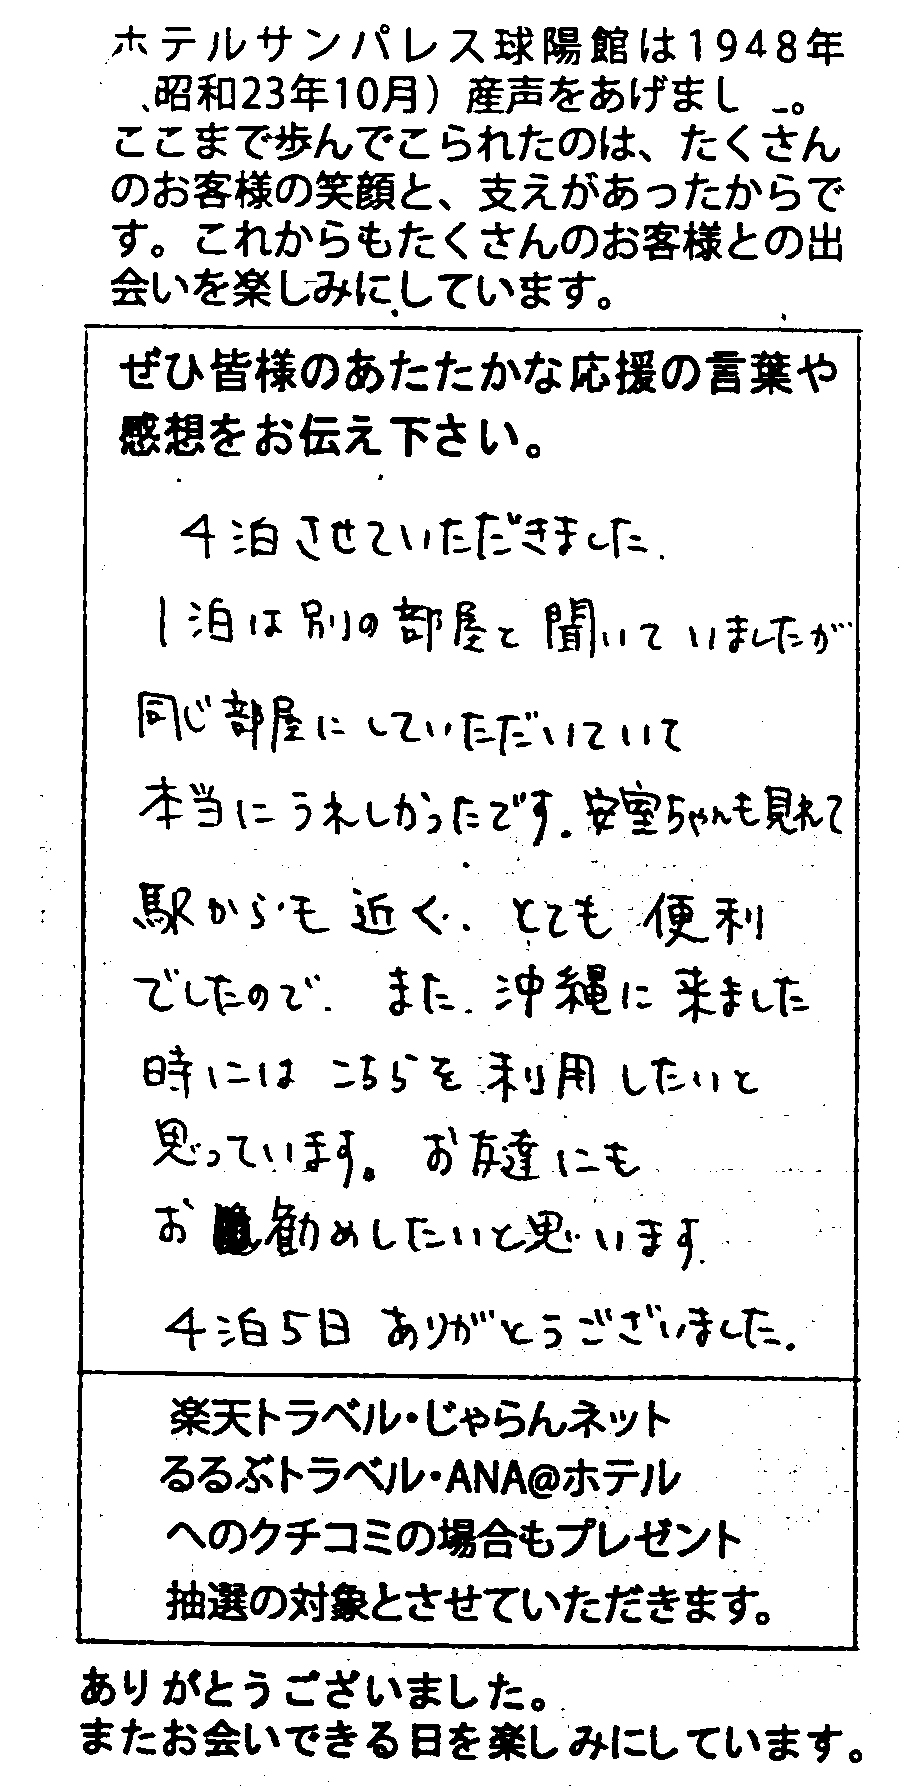 ホテルサンパレス球陽館は1948年
昭和23年10月）産声をあげまし 。
ここまで歩んでこられたのは、たくさん
のお客様の笑顔と、支えがあったからで
す。これからもたくさんのお客様との出
会いを楽しみにしています。
ぜひ皆様のあたたかな応援の言葉や
感想をお伝え下さい。
4泊させていただきました.
1泊は別の部屋と聞いていましたが
同じ部屋にしていただいていて
本当にうれしかったです.安室ちゃんも見れて
駅からも近く. とても便利
でしたので. また.沖縄に来ました
時にはこちらを利用したいと
思っています。お友達にも
お勧めしたいと思います.
4泊5日ありがとうございました.
楽天トラベル・じゃらんネット
るるぶトラベル・ANA@ホテル
へのクチコミの場合もプレゼント
抽選の対象とさせていただきます。
ありがとうございました。
またお会いできる日を楽しみにしています。